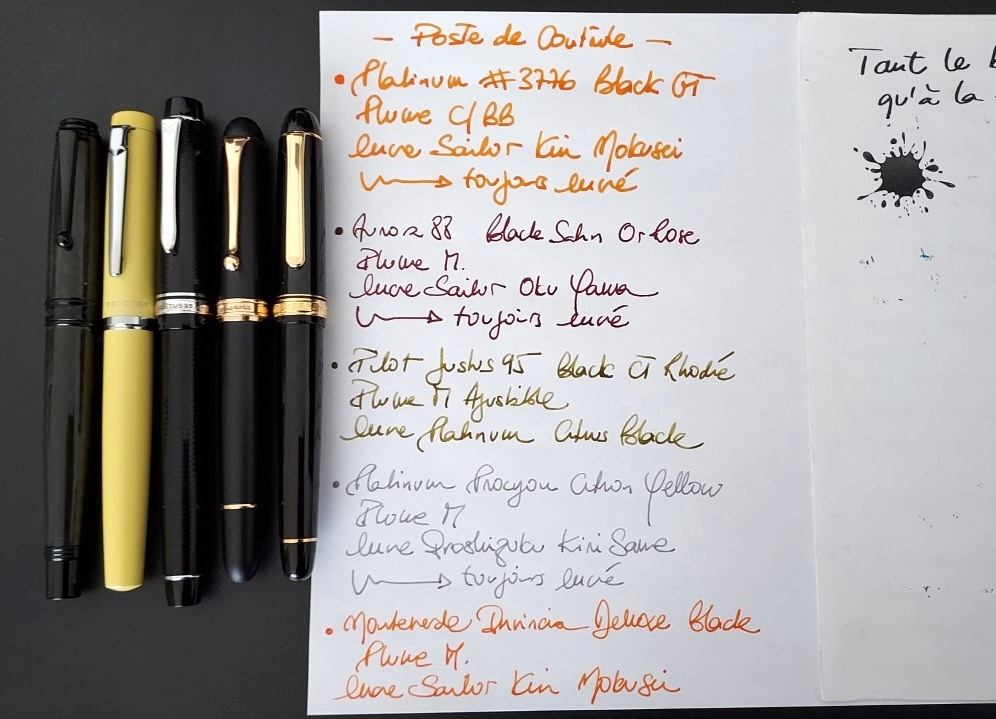 — Poste de Contrôle —
• Platinum #3776 Black GT
Plume C/BB
Encre Sailor Kin Mokusei
→ toujours encré
• Aurora 88 Black Satin Or Rose
Plume M.
Encre Sailor Oku Yama
→ toujours encré
• Pilot Justus 95 Black CT Rhodié
Plume M Ajustable
Encre Platinum Citrus Black
• Platinum Procyon Citron Yellow
Plume M
Encre Iroshizuku Kiri Same
→ toujours encré
• Montegrappa
Deluxe Black
Plume M.
Encre Sailor Kin Mokusei
Tant le
qu'à la
PROCYON